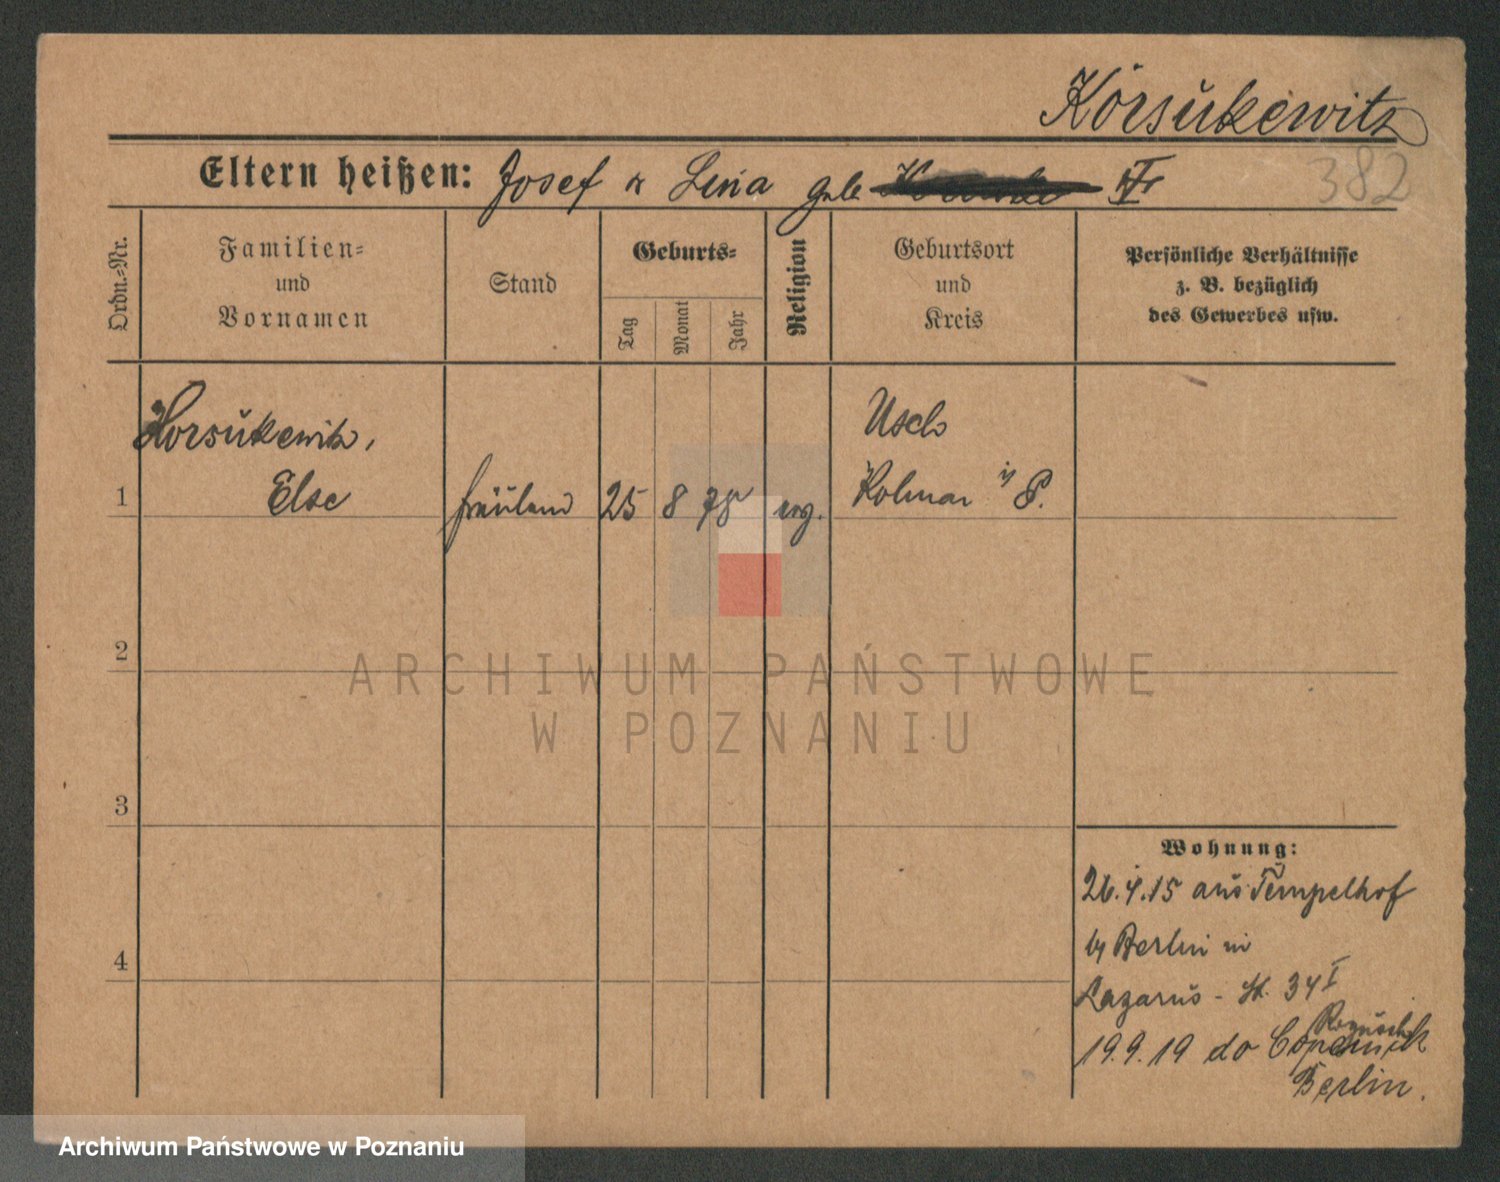 Korsukewitz
382
Eltern heißen: Josef u Lina geb
Ordn.-Nr.
Familien-
und
Vornamen
Stand
Geburts-
Tag
Monat
Jahr
Religion
Geburtsort
und
Kreis
Persönliche Verhältnisse
z. B. bezüglich
des Gewerbes usw.
1
Korsukewitz,
Else
Fräulein
25
8
78
evg.
Usch
Kolmar i/ P.
2
3
4
Wohnung:
26.4.15 aus Tempelhof
b/ Berlin in
Lazarus - st. 34 I
19.9.19 do Copernik
Berlin.
ARCHIWUM PAŃSTWOWE
W POZNANIU
Archiwum Państwowe w Poznaniu